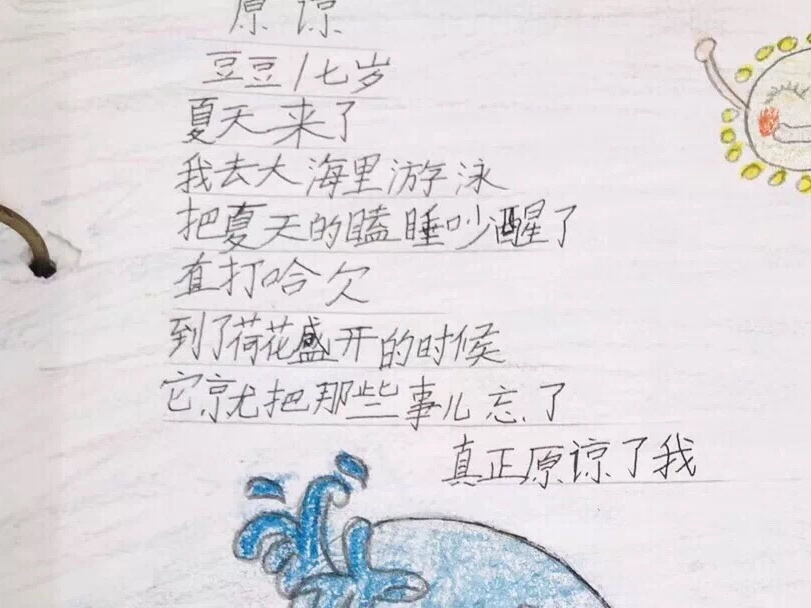 原谅
豆豆/七岁
夏天来了
我去大海里游泳
把夏天的瞌睡吵醒了
直打哈欠
到了荷花盛开的时候
它就把那些事儿忘了
真正原谅了我